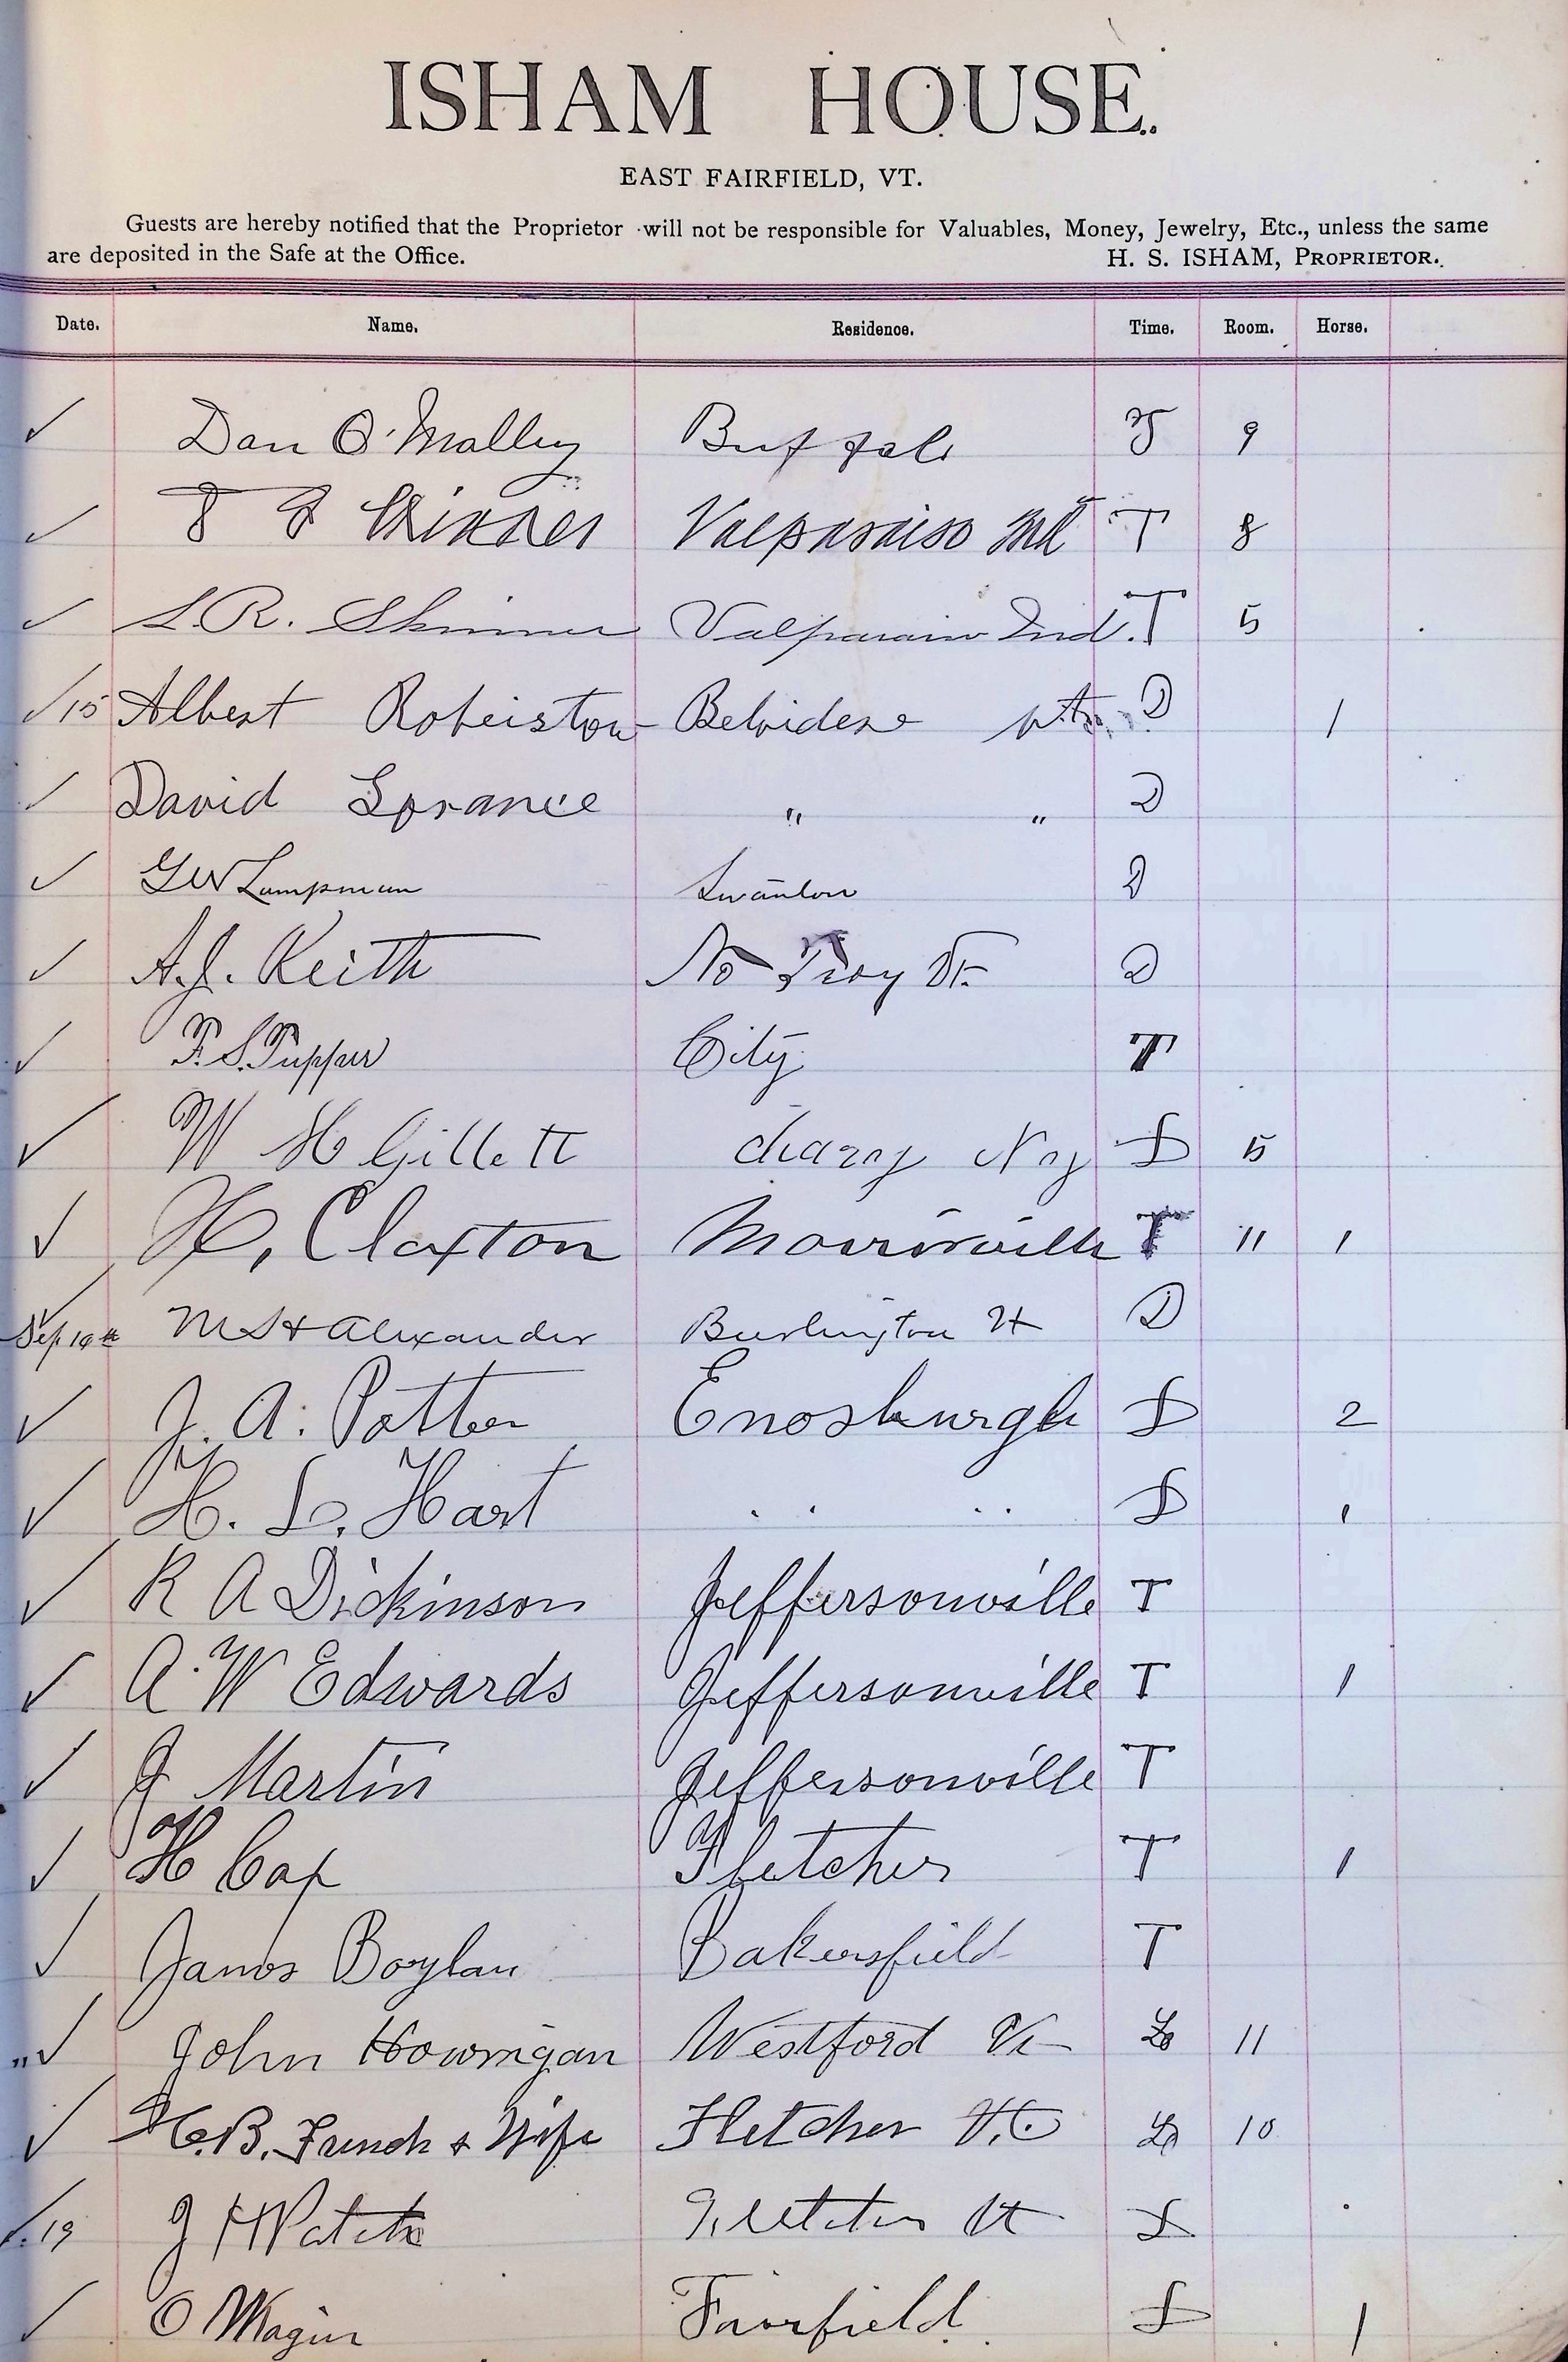 ISHAM HOUSE.
EAST FAIRFIELD, VT.
Guests are hereby notified that the Proprietor will not be responsible for Valuables, Money, Jewelry, Etc., unless the same
are deposited in the Safe at the Office. H. S. ISHAM, PROPRIETOR.
Date. Name. Residence. Time. Room. Horse.
✓ Dan O'Malley Buffalo T 9
✓ Skinner Valparaiso Ind T 8
✓ L.R. Skinner Valparaiso Ind. T 5
✓ 15 Albert Roberston Belvidere vt D 1
✓ David Lorance " " D
✓ G W Lampman Swanton D
✓ A.J. Keith No Troy Vt. D
✓ F. S. Tupper City T
✓ W H Gillett Chazy N y 5
✓ H. Claxton Morrisville T 11 1
✓ Sep M S H Alexander Burlington Vt D
✓ J. A. Potter Enosburgh D 2
✓ H. L. Hart .. .. D 1
✓ R A Dickinson Jeffersonville T
✓ A. W Edwards Jeffersonville T 1
✓ J Martin Jeffersonville T
✓ H Fletcher T 1
✓ James Boylan Bakersfield T
" ✓ John Howrigan Westford Vt 11
✓ H.B. French & Wife Fletcher Vt 10
✓ 19 J H Fletcher Vt
✓ O Fairfield 1